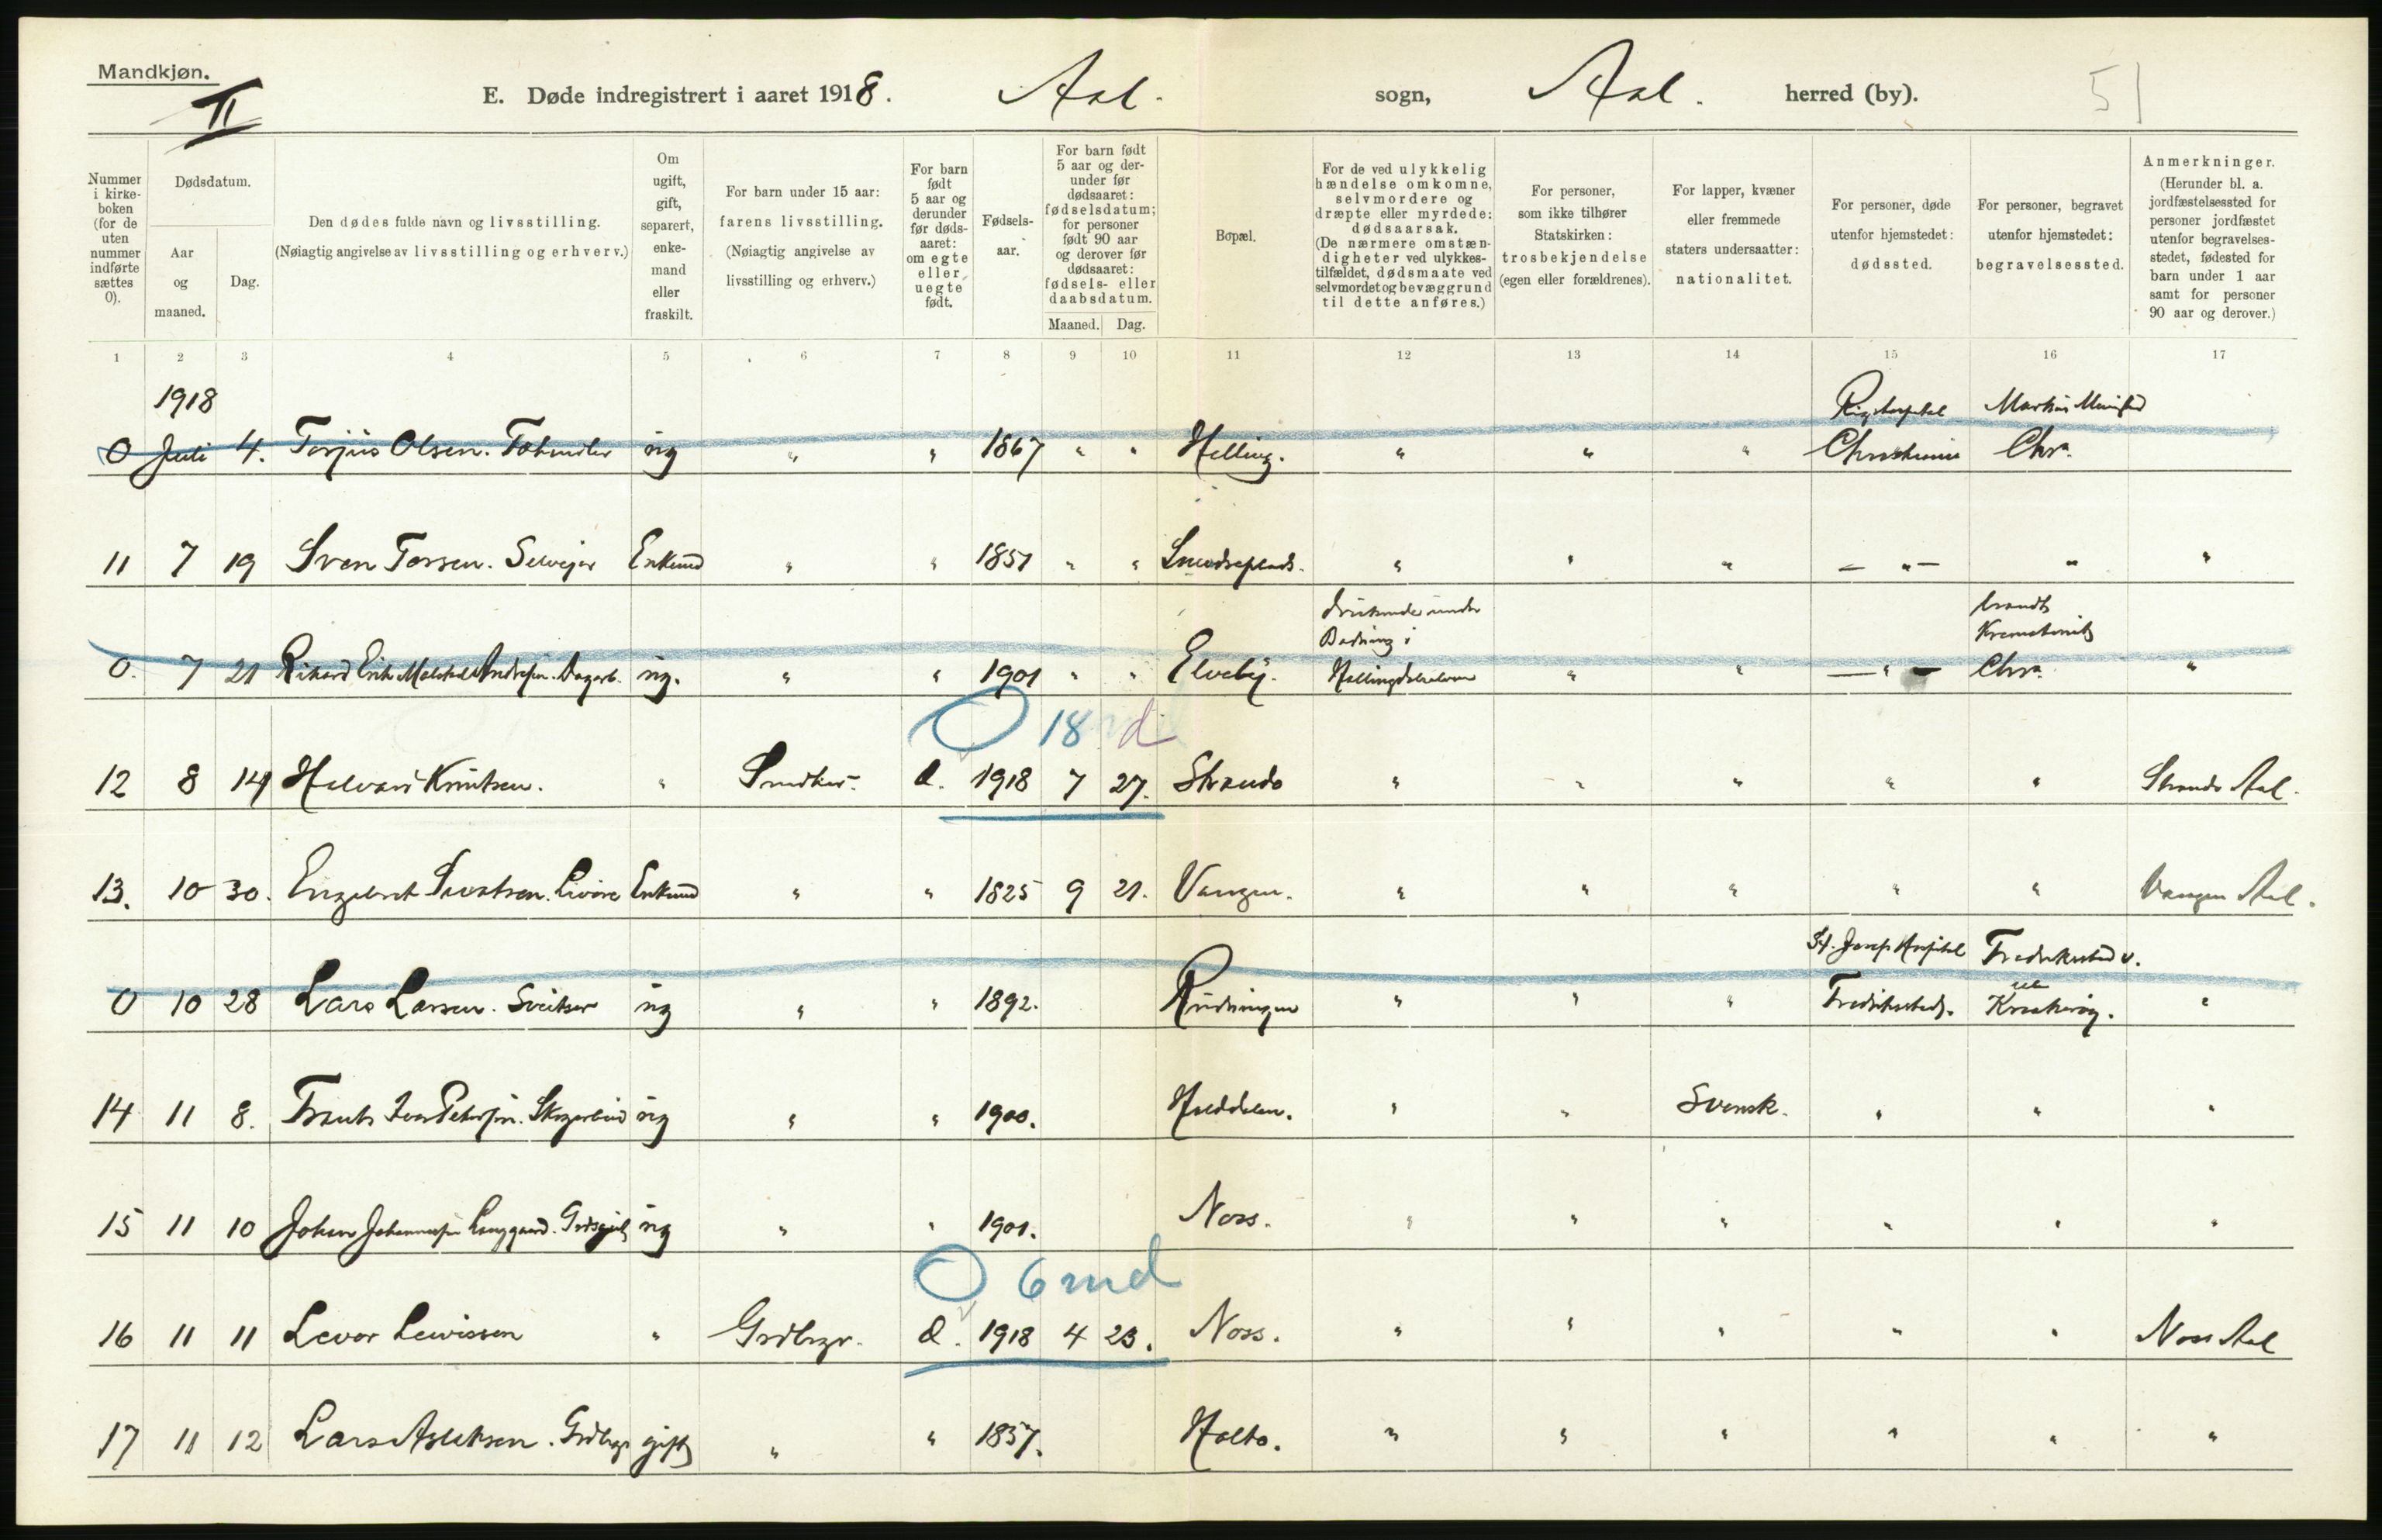 Mandkjøn.
II
E. Døde indregistrert i aaret 1918. Aal. sogn, Aal. herred (by). 51
Nummer i kirkeboken (for de uten nummer indførte sættes 0).
Dødsdatum.
Aar og maaned.
Dag.
Den dødes fulde navn og livsstilling.
(Nøiagtig angivelse av livsstilling og erhverv.)
Om ugift, gift, separert, enkemand eller fraskilt.
For barn under 15 aar: farens livsstilling. (Nøiagtig angivelse av livsstilling og erhverv.)
For barn født 5 aar og derunder før dødsaaret: om egte eller uegte født.
Fødselsaar.
For barn født 5 aar og derunder før dødsaaret: fødselsdatum; for personer født 90 aar og derover før dødsaaret: fødsels- eller daabsdatum.
Maaned. Dag.
Bopæl.
For de ved ulykkelig hændelse omkomne, selvmordere og dræpte eller myrdede: dødsaarsak. (De nærmere omstændigheter ved ulykkestilfældet, dødsmaate ved selvmordet og bevæggrund til dette anføres.)
For personer, som ikke tilhører Statskirken: trosbekjendelse (egen eller forældrenes).
For lapper, kvæner eller fremmede staters undersaatter: nationalitet.
For personer, døde utenfor hjemstedet: dødssted.
For personer, begravet utenfor hjemstedet: begravelsessted.
Anmerkninger. (Herunder bl. a. jordfæstelsessted for personer jordfæstet utenfor begravelsesstedet, fødested for barn under 1 aar samt for personer 90 aar og derover.)
1 2 3 4 5 6 7 8 9 10 11 12 13 14 15 16 17
1918 Rigshospital
0 Juli 4. Torjus Olsen. ug " " 1867 " " Helling. " " " Christiania Chra.
11 7 19 Sven Torsen. Selveier Enkemd " " 1857 " " " " " — " — " "
druknede under Badning i
0. 7 21 Rikard Erik Andresen. Dagarb. ug. " " 1901 " " Elveby. Hallingdalselven " " — " — Chra. "
18 d
12 8 14 Halvard Knutsen. " d. 1918 7 27. Strande " " " " " Strande Aal.
13. 10 30. Engebret Enkemd " " 1825 9 21. Vangen. " " " " " Vangen Aal.
St. Josep Hospital Fredrikstad v.
0 10 28 Lars Larsen. Sveitser ug " " 1892. Rudningen " " " Fredrikstad. Kraakerøy. "
14 11 8. Frants Ivar Petersen. Skogarbeid ug " " 1900. " " Svensk. " " "
15 11 10 Johan Johannessen Langgaard. ug " " 1901. Noss. " " " " " "
6 md
16 11 11 Levor Lewissen " Grdbrgr. d. 1918 4 23. Noss. " " " " " Noss Aal
17 11 12 Lars Asleksen. Grdbrgr gift " " 1837. Holto. " " " " " "